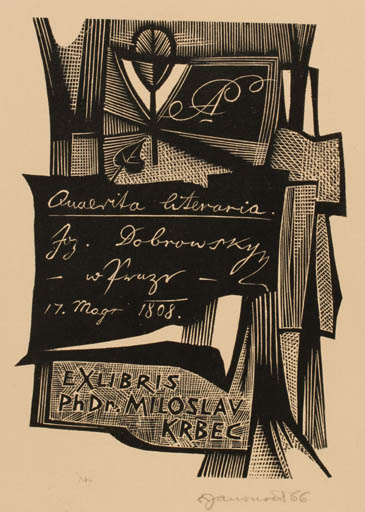 A
Quaerita literaria.
Joz. Dobrowsky
– w Praze –
17. May 1808.
EXLIBRIS
PhDr. MILOSLAV
KRBEC
66